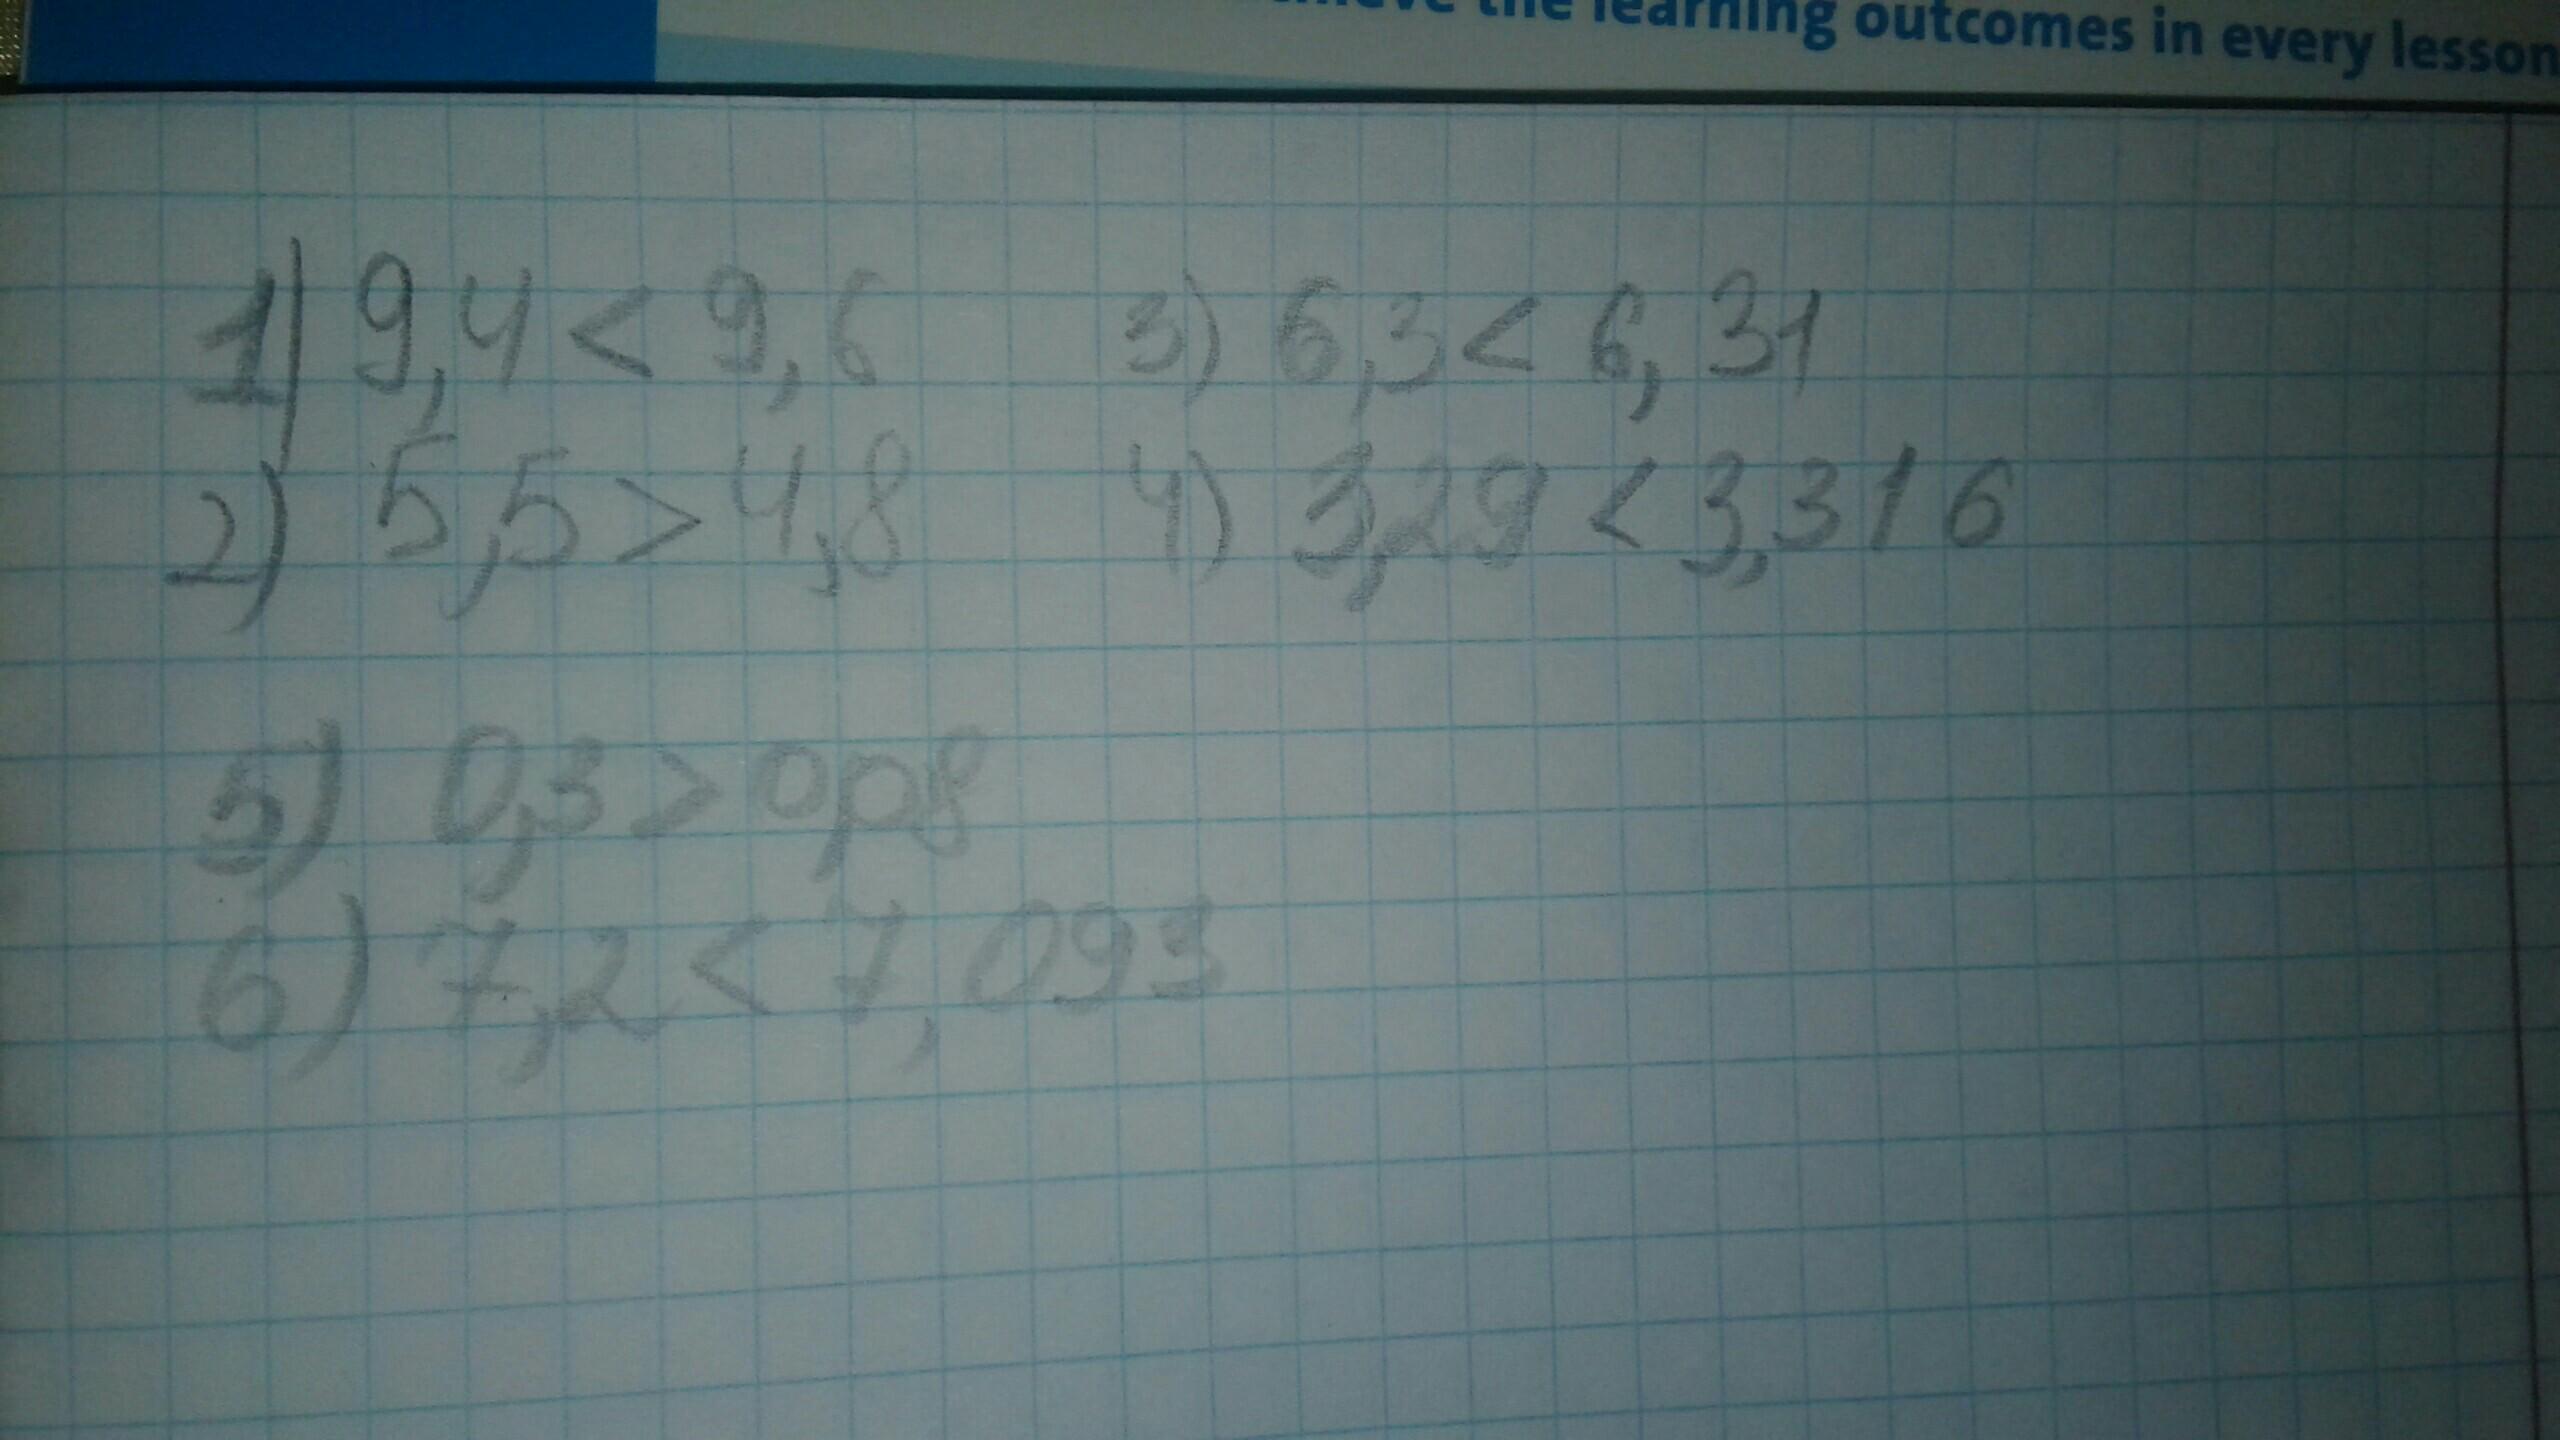 the learning outcomes in every lesson
1) 9,4 < 9,6 3) 6,3 < 6, 31
2) 5,5 > 4,8 4) 3,29 < 3,316
5) 0,3 > 0,08
6) 7,2 < 7,093